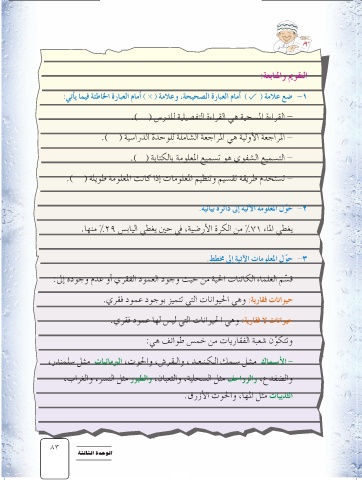 التقويم والمتابعة:
١- ضع علامة ( ✓ ) أمام العبارة الصحيحة، وعلامة ( × ) أمام العبارة الخاطئة فيما يأتي:
- القراءة المسحية هي القراءة التفصيلية للدرس ( ).
- المراجعة الأولية هي المراجعة الشاملة للوحدة الدراسية ( ).
- التسميع الشفوي هو تسميع المعلومة بالكتابة ( ).
- تستخدم طريقة تقسيم وتنظيم المعلومات إذا كانت المعلومة طويلة ( ).
٢- حوّل المعلومة الآتية إلى دائرة بيانية.
يغطي الماء ٧١٪ من الكرة الأرضية، في حين يغطي اليابس ٢٩٪ منها.
٣- حوّل المعلومات الآتية إلى مخطط.
قسّم العلماء الكائنات الحية من حيث وجود العمود الفقري أو عدم وجوده إلى:
حيوانات فقارية: وهي الحيوانات التي تتميز بوجود عمود فقري.
حيوانات لا فقارية: وهي الحيوانات التي ليس لها عمود فقري.
وتتكوّن شعبة الفقاريات من خمس طوائف هي:
- الأسماك مثل سمك الكنعد، والقرش، والحوت، البرمائيات مثل سلمندر،
والضفدع، والزواحف مثل السحلية، والثعبان، والطيور مثل النسر، والغراب،
الثدييات مثل المها، والحوت الأزرق.
الوحدة الثالثة
٨٣